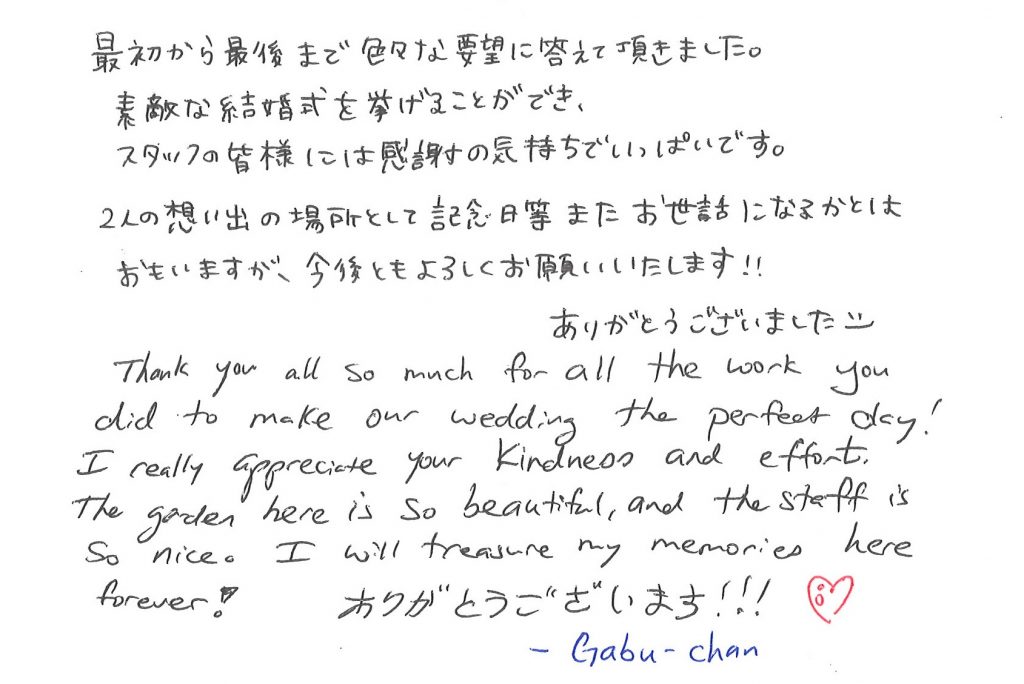 最初から最後まで色々な要望に答えて頂きました。
素敵な結婚式を挙げることができ、
スタッフの皆様には感謝の気持ちでいっぱいです。
2人の想い出の場所として記念日等またお世話になるかとは
おもいますが、今後ともよろしくお願いいたします!!
ありがとうございました
Thank you all so much for all the work you
did to make our wedding the perfect day!
I really appreciate your kindness and effort.
The garden here is so beautiful, and the staff is
so nice. I will treasure my memories here
forever! ありがとうございます!!!
- Gabu-chan